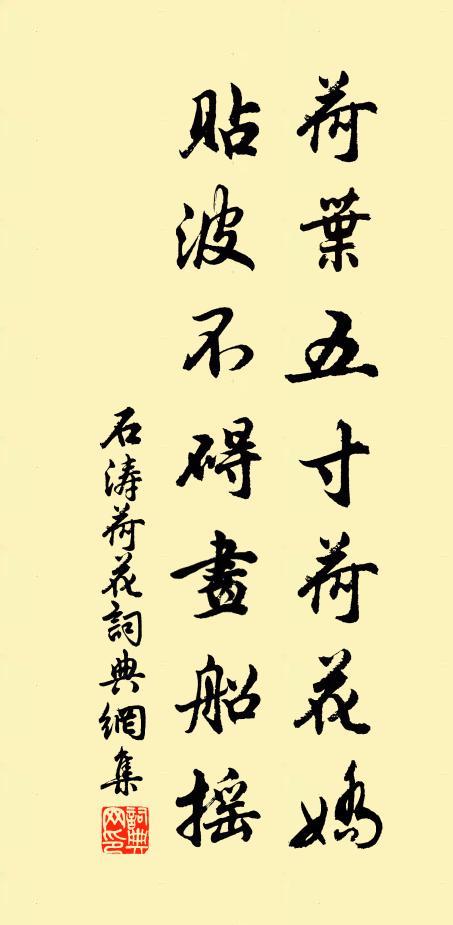 荷葉五寸荷花嬌
貼波不碍畫船摇
石涛荷花詞典網集
詞典网印